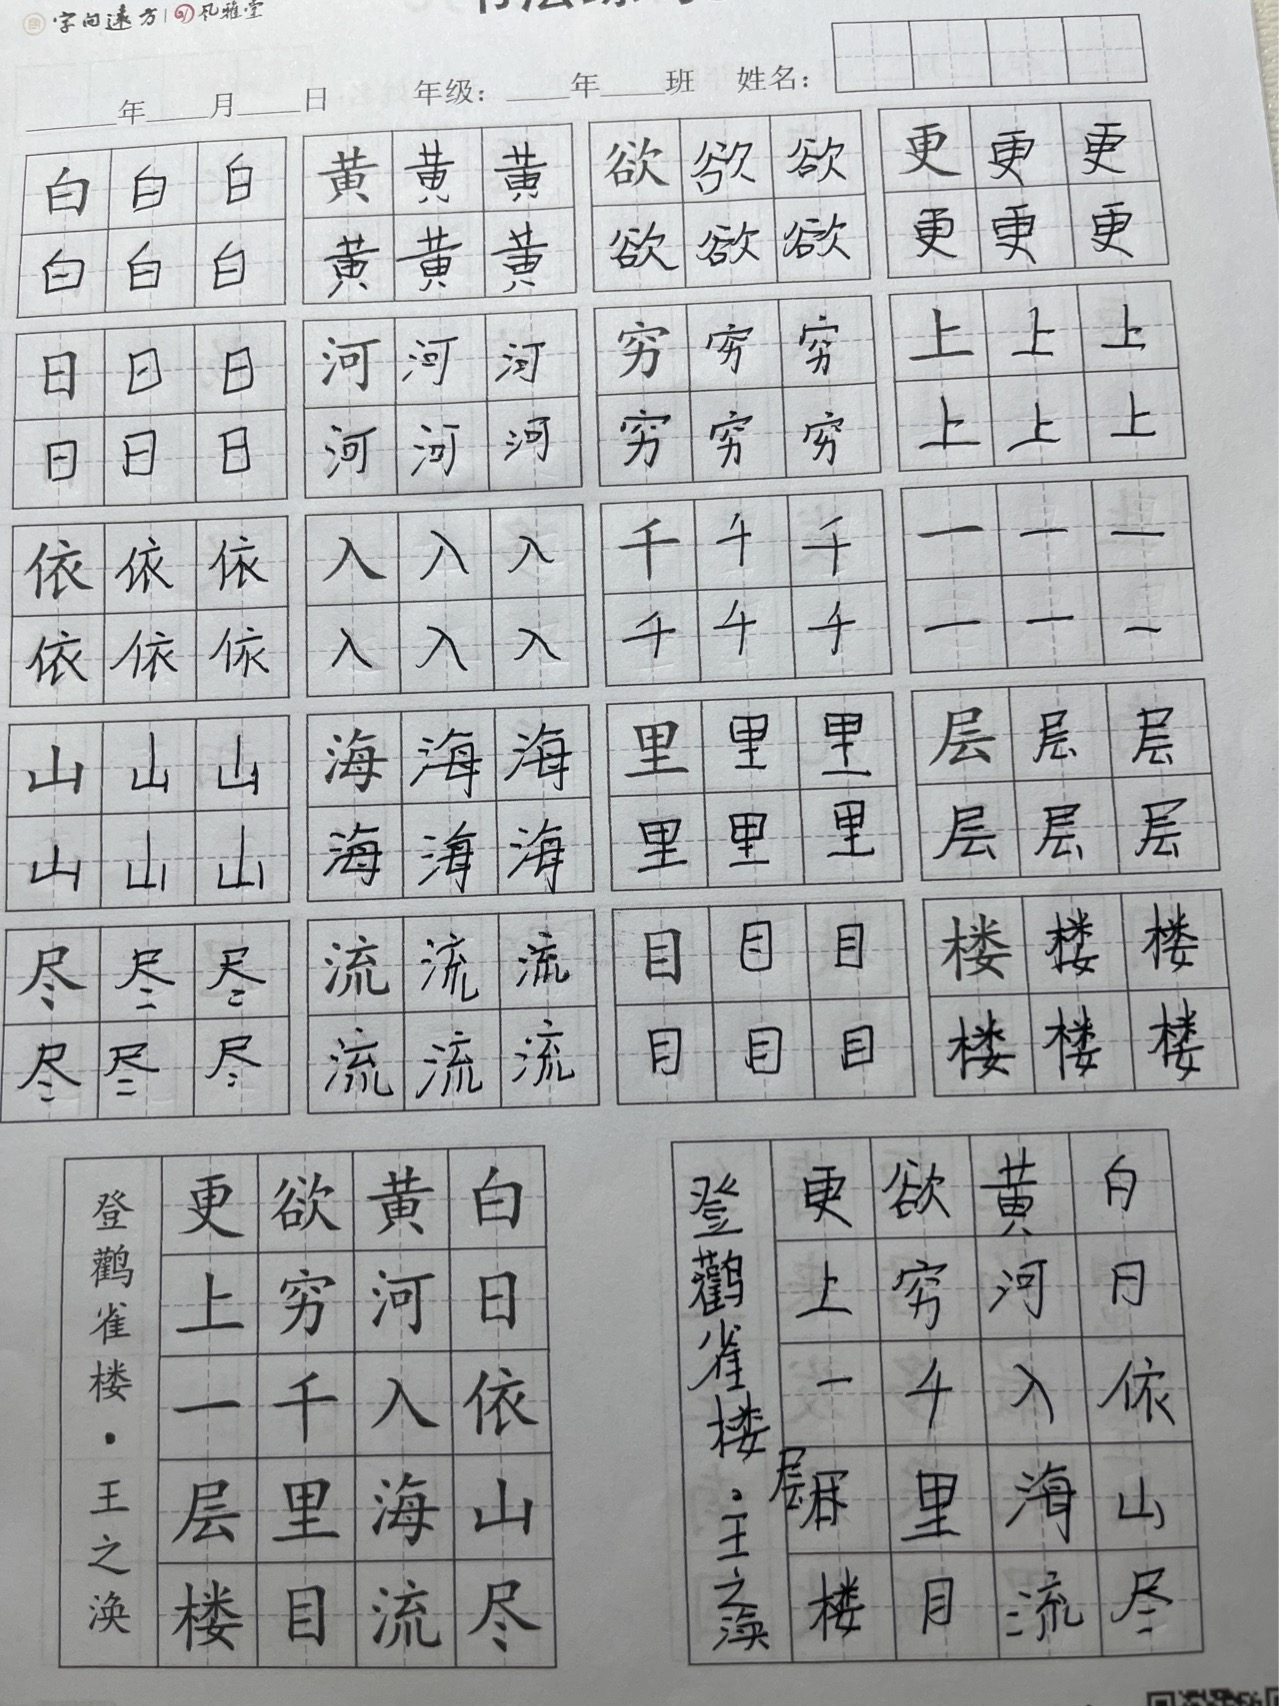 字向远方 凤雅堂
年 月 日 年级: 年 班 姓名:
白白白 黄黄黄 欲欲欲 更更更
白白白 黄黄黄 欲欲欲 更更更
日日日 河河河 穷穷穷 上上上
日日日 河河河 穷穷穷 上上上
依依依 入入入 千千千 一一一
依依依 入入入 千千千 一一一
山山山 海海海 里里里 层层层
山山山 海海海 里里里 层层层
尽尽尽 流流流 目目目 楼楼楼
尽尽尽 流流流 目目目 楼楼楼
白日依山尽
黄河入海流
欲穷千里目
更上一层楼
登鹳雀楼·王之涣
白日依山尽
黄河入海流
欲穷千里目
更上一层楼
登鹳雀楼·王之涣